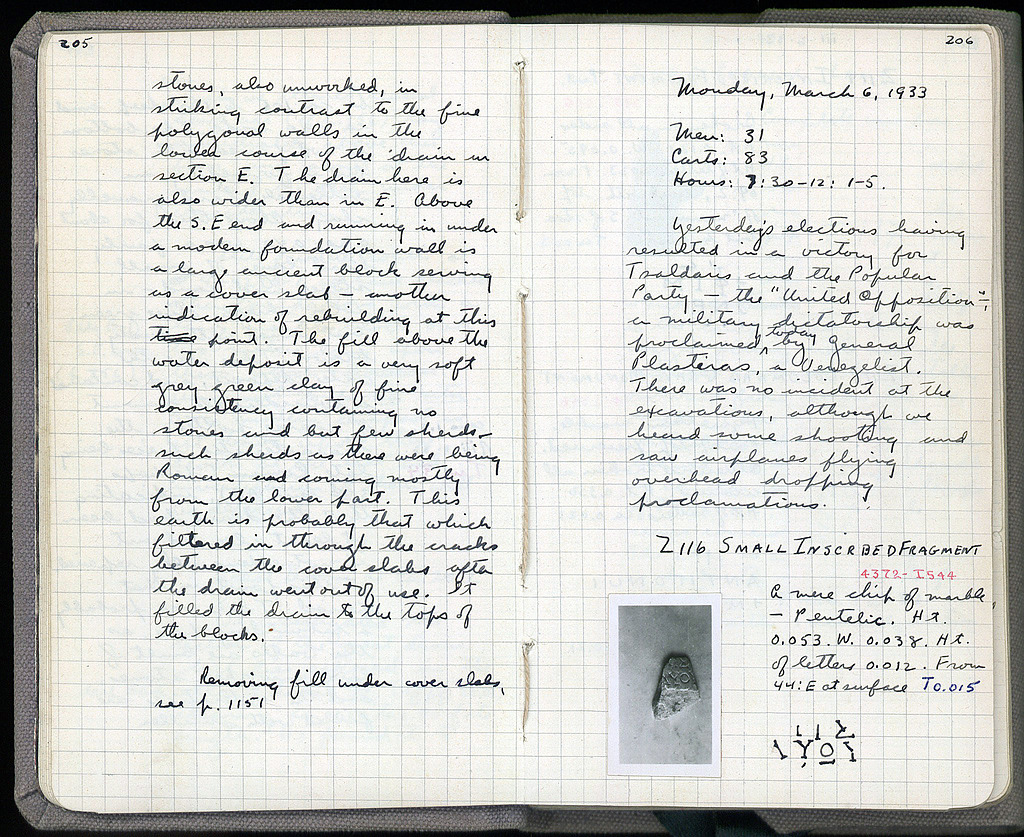 205
stones, also unworked, in
striking contrast to the fine
polygonal walls in the
lower course of the drain in
section E. The drain here is
also wider than in E. Above
the S.E end and running in under
a modern foundation wall is
a large ancient block serving
as a cover slab — another
indication of rebuilding at this
time point. The fill above the
water deposit is a very soft
grey green clay of fine
consistency containing no
stones and but few sherds –
such sherds as there were being
Roman and coming mostly
from the lower part. This
earth is probably that which
filtered in through the cracks
between the cover slabs after
the drain went out of use. It
filled the drain to the tops of
the blocks.
Removing fill under cover slabs,
see p. 1151
206
Monday, March 6, 1933
Men: 31
Carts: 83
Hours: 7:30–12: 1–5.
Yesterday's elections having
resulted in a victory for
Tsaldaris and the Popular
Party — the "United Opposition" –,
a military dictatorship was
proclaimed today by General
Plasteras, a Venezelist.
There was no incident at the
excavations, although we
heard some shooting and
saw airplanes flying
overhead dropping
proclamations.
Z116 SMALL INSCRBED FRAGMENT
4372 - I 544
A mere chip of marble,
– Pentelic. Ht.
0.053. W. 0.038. Ht.
of letters 0.012. From
44:E at surface TO.015
ΥΟ